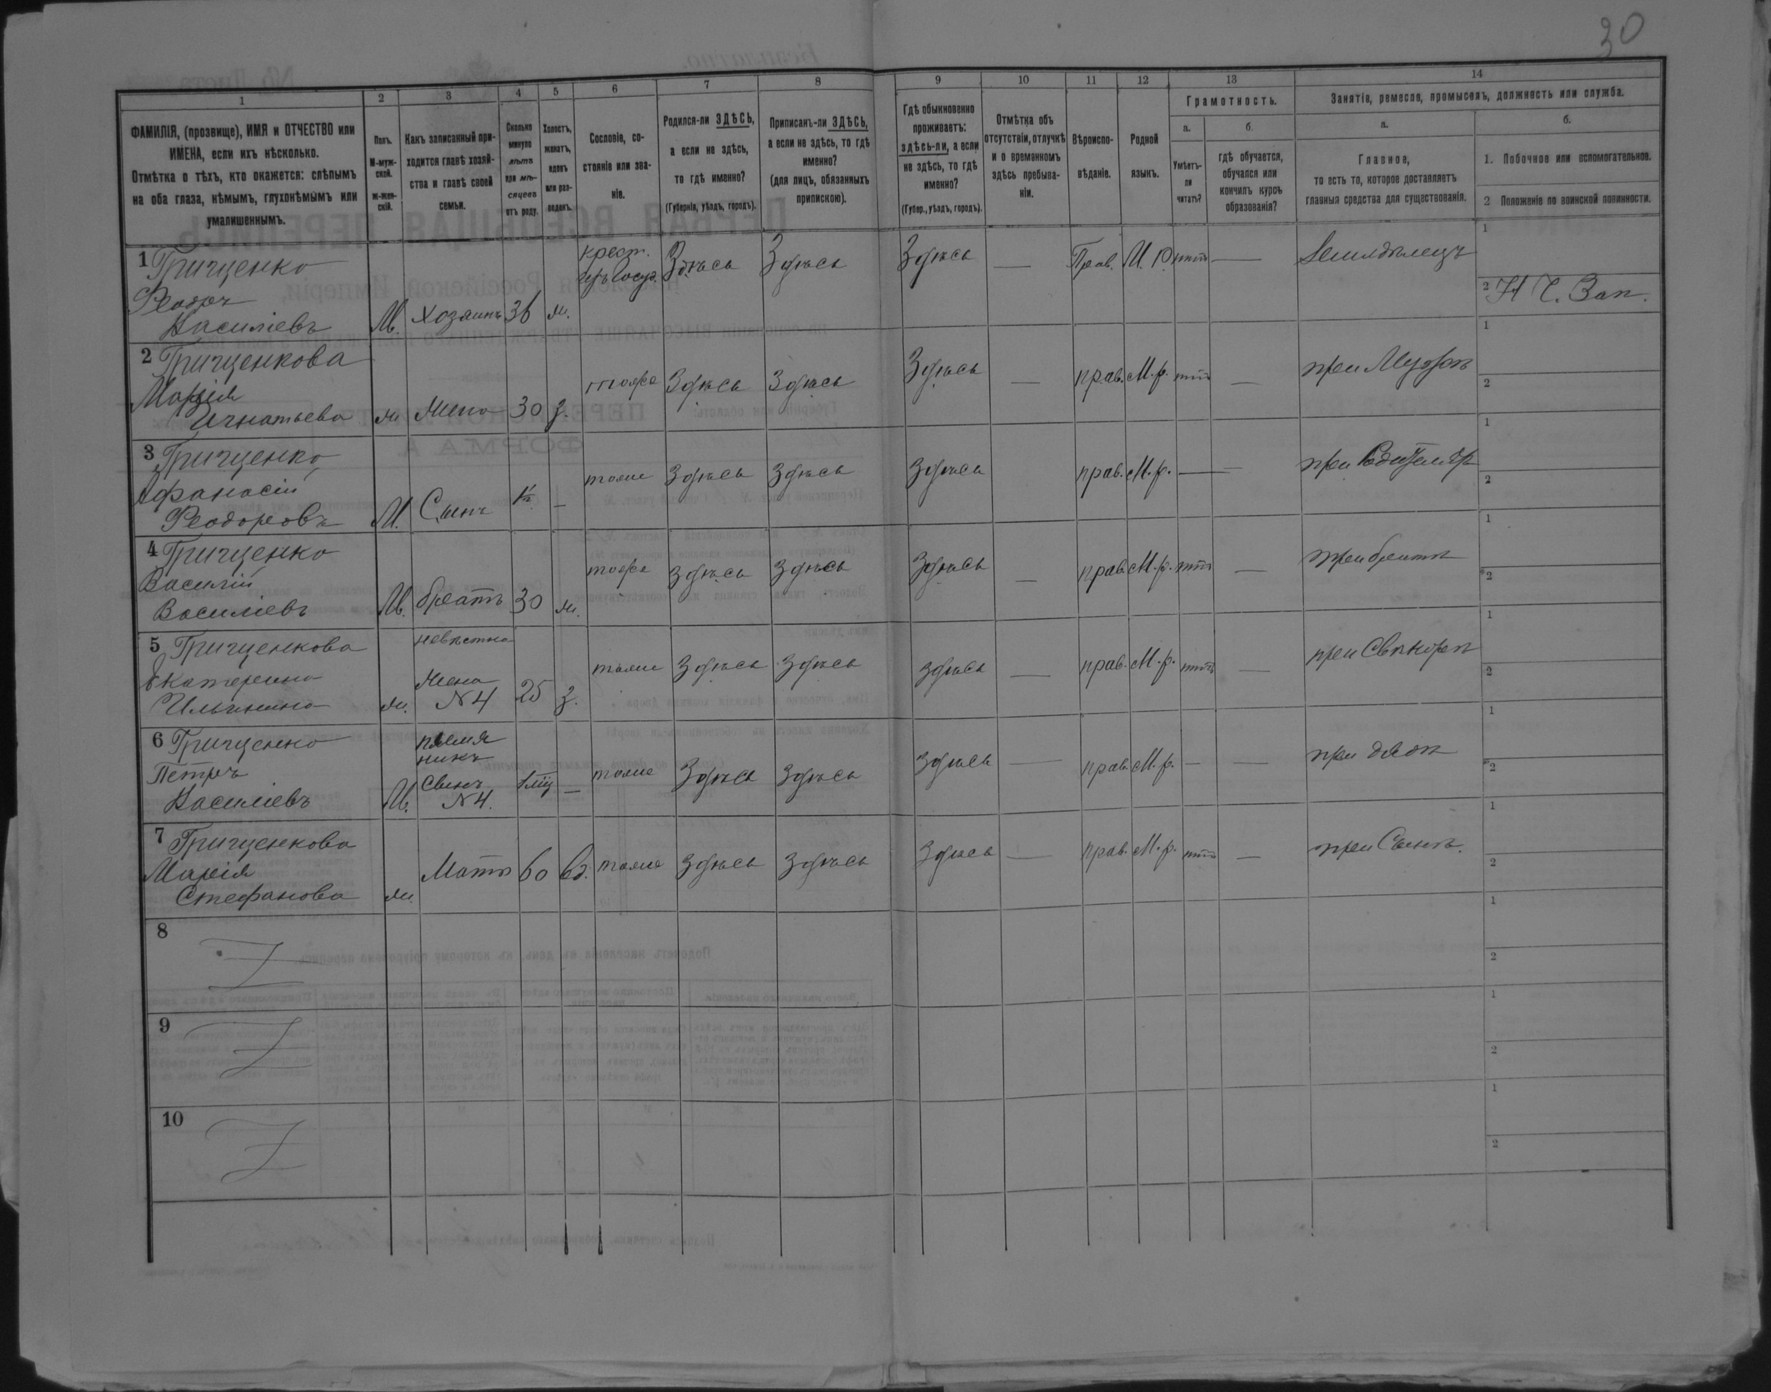 30
1 2 3 4 5 6 7 8 9 10 11 12 13 14
ФАМИЛІЯ, (прозвище), ИМЯ и ОТЧЕСТВО или ИМЕНА, если ихъ нѣсколько.
Отмѣтка о тѣхъ, кто окажется: слѣпымъ на оба глаза, нѣмымъ, глухонѣмымъ или умалишеннымъ.
Полъ.
М-мужской.
Ж-женскій.
Какъ записанный приходится главѣ хозяйства и главѣ своей семьи.
Сколько минуло лѣтъ или мѣсяцевъ отъ роду.
Холостъ, женатъ, вдовъ или разведенъ.
Сословіе, состояніе или званіе.
Родился-ли ЗДѢСЬ, а если не здѣсь, то гдѣ именно?
(Губернія, уѣздъ, городъ).
Приписанъ-ли ЗДѢСЬ, а если не здѣсь, то гдѣ именно?
(для лицъ, обязанныхъ припискою).
Гдѣ обыкновенно проживаетъ: здѣсь-ли, а если не здѣсь, то гдѣ именно?
(Губер., уѣздъ, городъ).
Отмѣтка объ отсутствіи, отлучкѣ и о временномъ здѣсь пребываніи.
Вѣроисповѣданіе.
Родной языкъ.
Грамотность.
а.
Умѣетъ-ли читать?
б.
гдѣ обучается, обучался или кончилъ курсъ образованія?
Занятія, ремесло, промыселъ, должность или служба.
а.
Главное,
то есть то, которое доставляетъ главныя средства для существованія.
б.
1. Побочное или вспомогательное.
2 Положеніе по воинской повинности.
1 Грищенко Феодоръ Василіевъ М. хозяинъ 36 ж. крест. Здѣсь Здѣсь Здѣсь — Прав. М. Р. нѣтъ — Земледѣлецъ 1
2 Н Ч. Зап.
2 Грищенкова Марія Игнатьева ж Жена 30 з. тоже Здѣсь Здѣсь Здѣсь — прав. М. р. нѣтъ — при Мужѣ 1
2
3 Грищенко Афанасій Феодоровъ М. Сынъ — тоже Здѣсь Здѣсь Здѣсь прав. М. р. — при Родителяхъ 1
2
4 Грищенко Василій Василіевъ М. братъ 30 ж. тоже Здѣсь Здѣсь Здѣсь — прав. М. р. нѣтъ — при братѣ 1
2
5 Грищенкова Екатерина Ильинина ж. невѣстка Жена №4 25 з. тоже Здѣсь Здѣсь Здѣсь — прав. М. р. нѣтъ — при 1
2
6 Грищенко Петръ Василіевъ М. племянникъ Сынъ №4. — тоже Здѣсь Здѣсь Здѣсь — прав. М. р. — — при дядѣ 1
2
7 Грищенкова Марія Стефанова ж Мать 60 в. тоже Здѣсь Здѣсь Здѣсь — прав. М. р. нѣтъ — при Сынѣ. 1
2
8 1
2
9 1
2
10 1
2